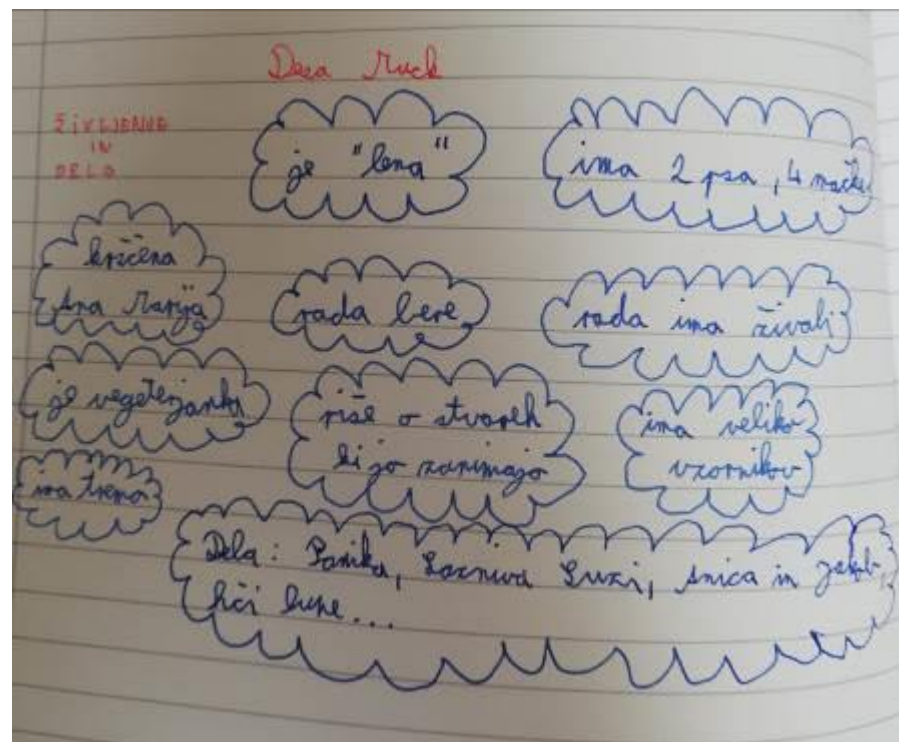 Desa Muck
ŽIVLJENJE
IN
DELO
je "lena"
ima 2 psa, 4 mačke
krščena
Ana Marija
rada bere
rada ima živali
je vegeterjanka
piše o stvareh
ki jo zanimajo
ima veliko
vzornikov
ima tremo
Dela: Panika, Lazniva Suzi, Anica in Jakob,
hči lune...